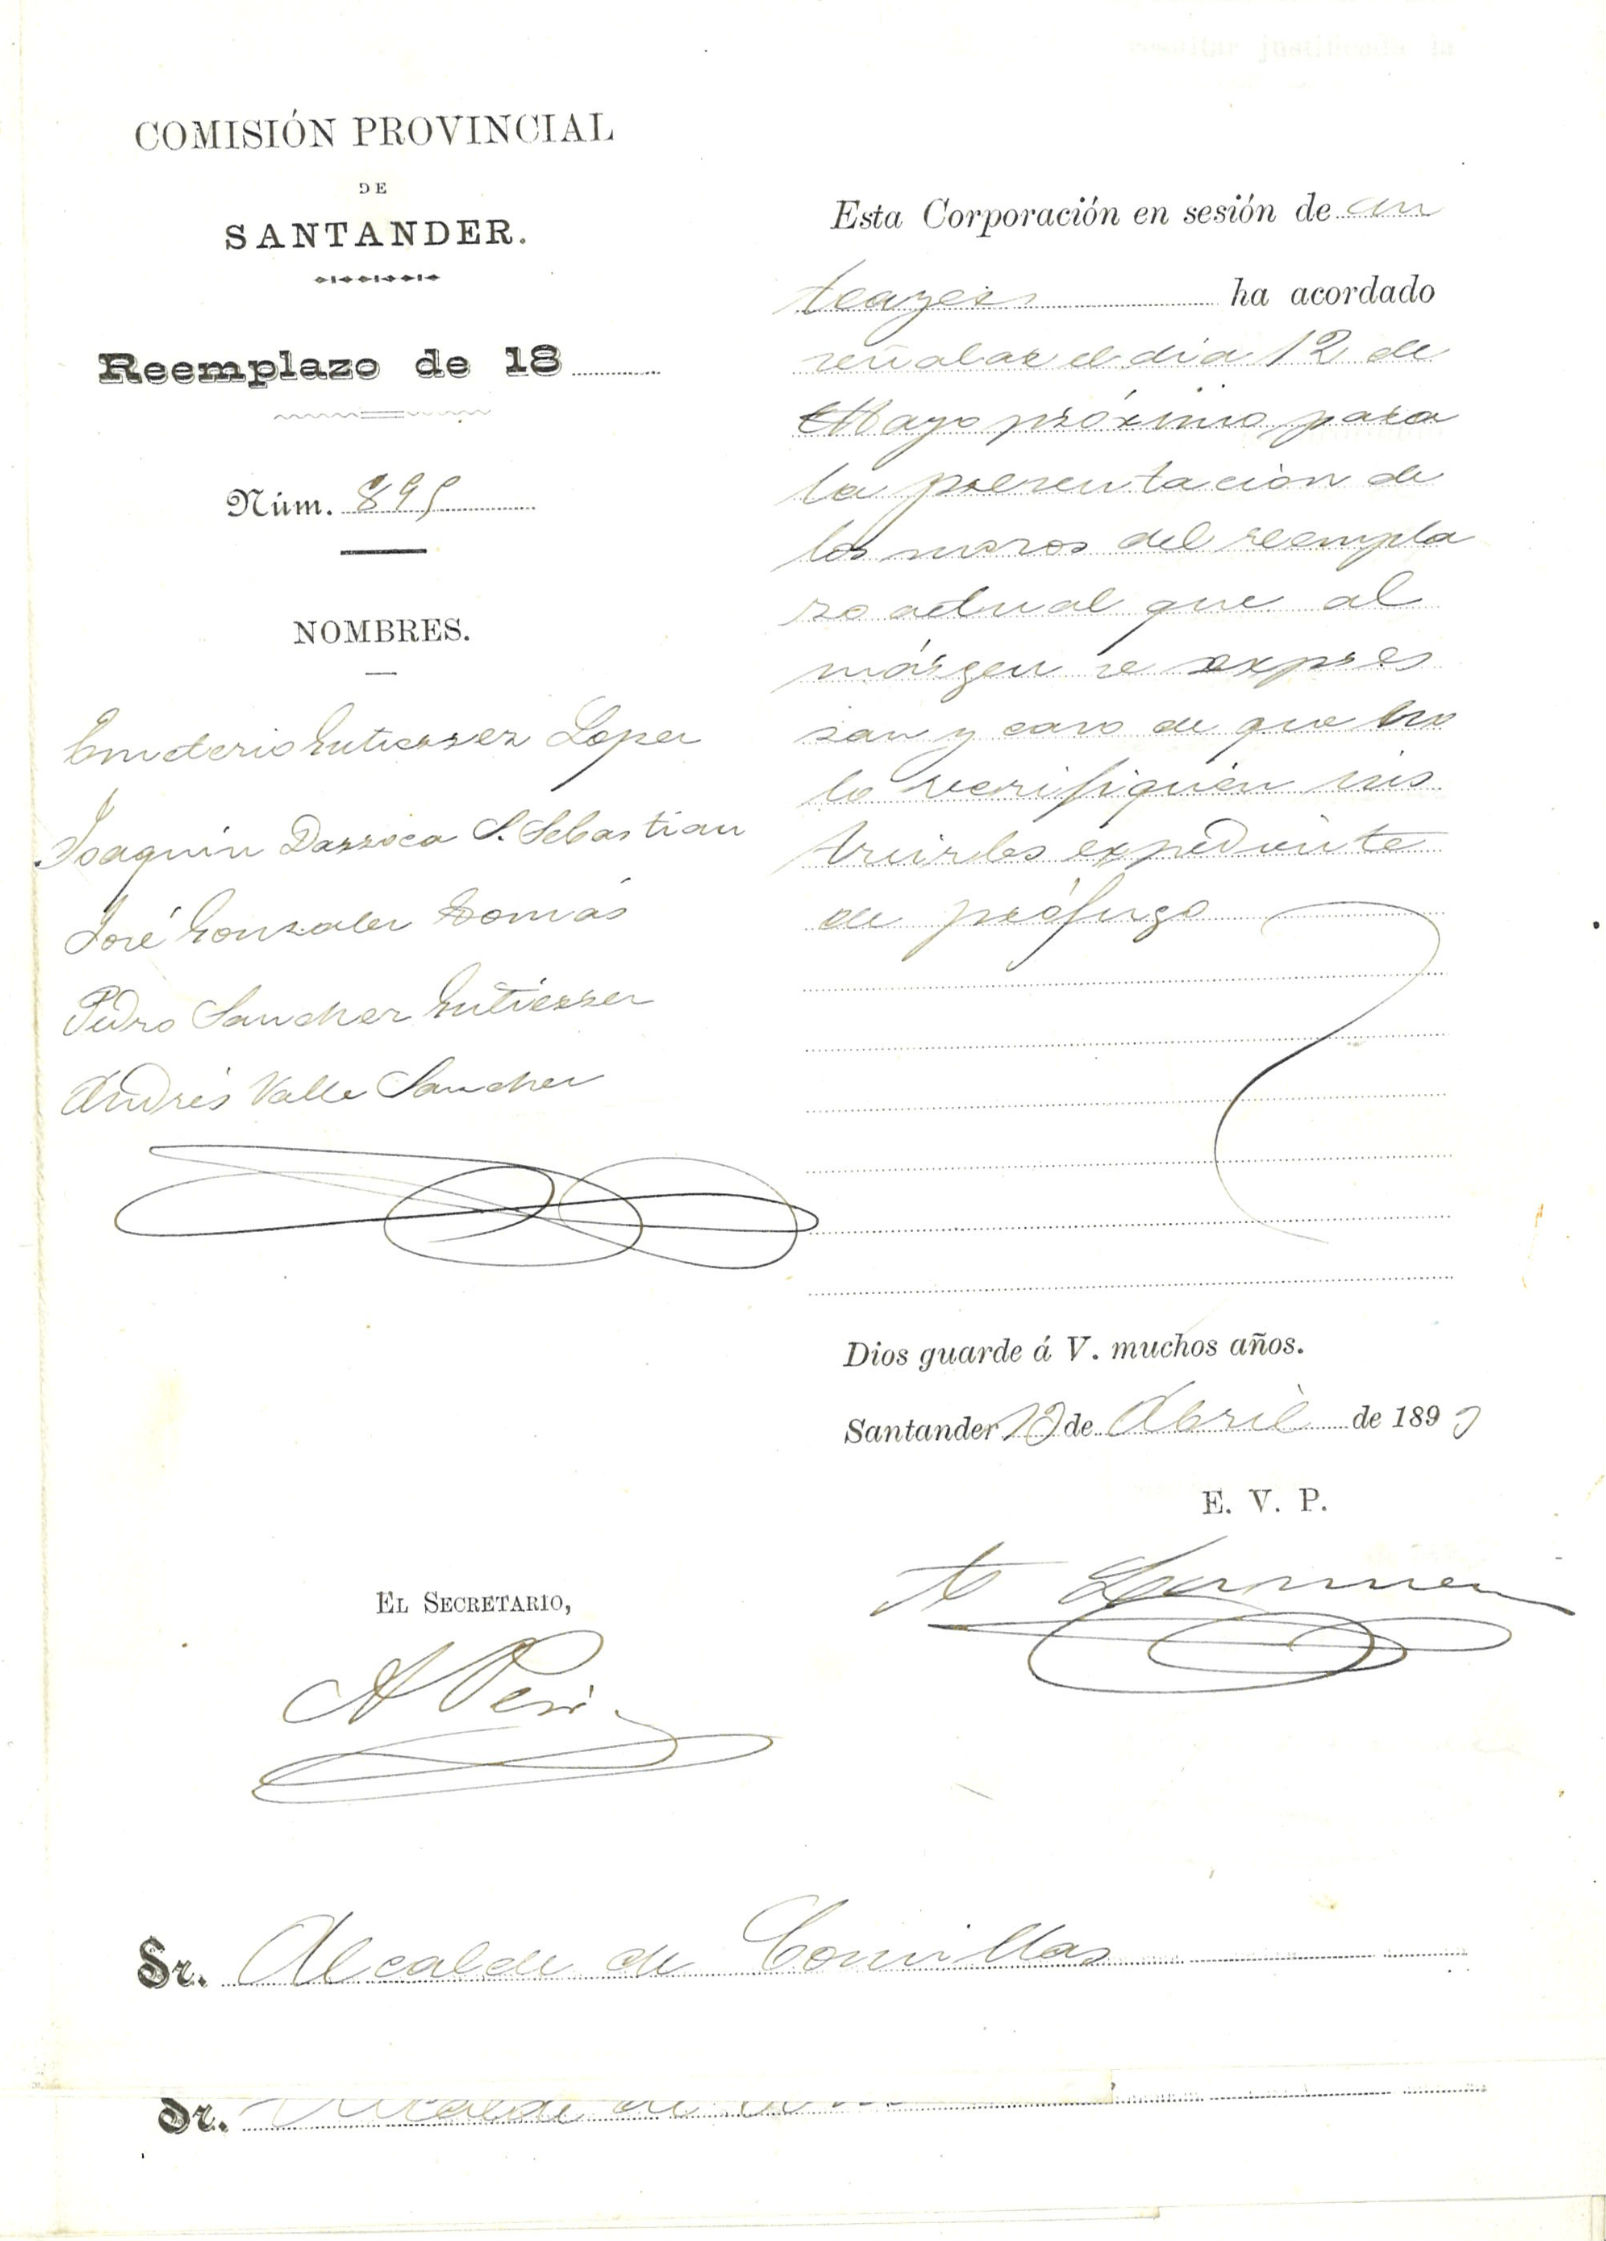 COMISIÓN PROVINCIAL
DE
SANTANDER.
Reemplazo de 18
Núm. 895
NOMBRES.
Emeterio Gutierrez Lopez
Joaquin Darroca S. Sebastian
José Gonzalez Tomás
Pedro Sanchez Gutierrez
Andrés Valle Sanchez
resultar justificada la
Esta Corporación en sesión de an
teayer ha acordado
señalar el dia 12 de
Mayo próximo para
la presentacion de
los mozos del reempla
zo actual que al
márgen se expres
san y caso de que no
lo verifiquen ins
truirles expediente
de prófugo
Dios guarde á V. muchos años.
Santander 19 de Abril de 189
E. V. P.
EL SECRETARIO,
Sr. Alcalde de Comillas
Sr. Alcalde de